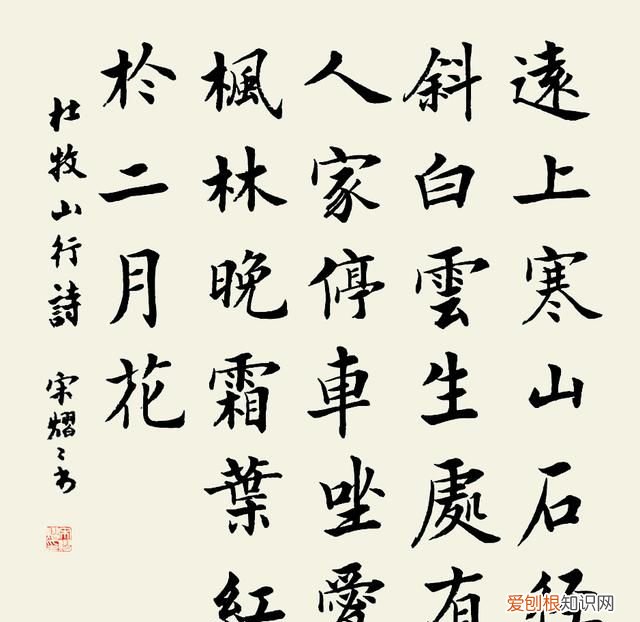 遠上寒山石徑
斜白雲生處有
人家停車坐愛
楓林晚霜葉紅
於二月花
杜牧山行詩 宋熠〻书
爱刨根知识网